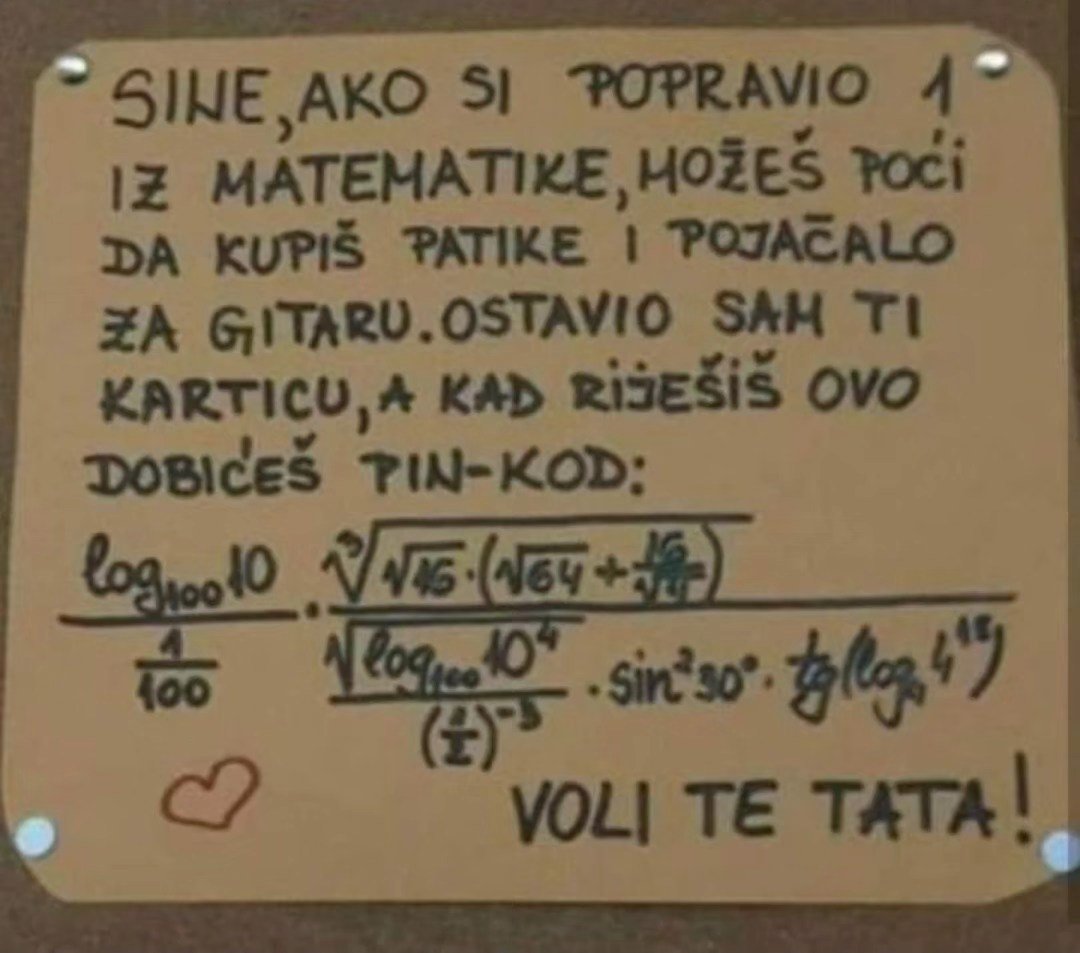 SINE, AKO SI POPRAVIO 1
IZ MATEMATIKE, MOŽEŠ POĆI
DA KUPIŠ PATIKE I POJAČALO
ZA GITARU. OSTAVIO SAM TI
KARTICU, A KAD RIJEŠIŠ OVO
DOBIĆEŠ PIN-KOD:
log₁₀₀10 · ∛√16·(√64+
1/100 √log₁₀₀10⁴ · sin²30° · tg(log 4
VOLI TE TATA!